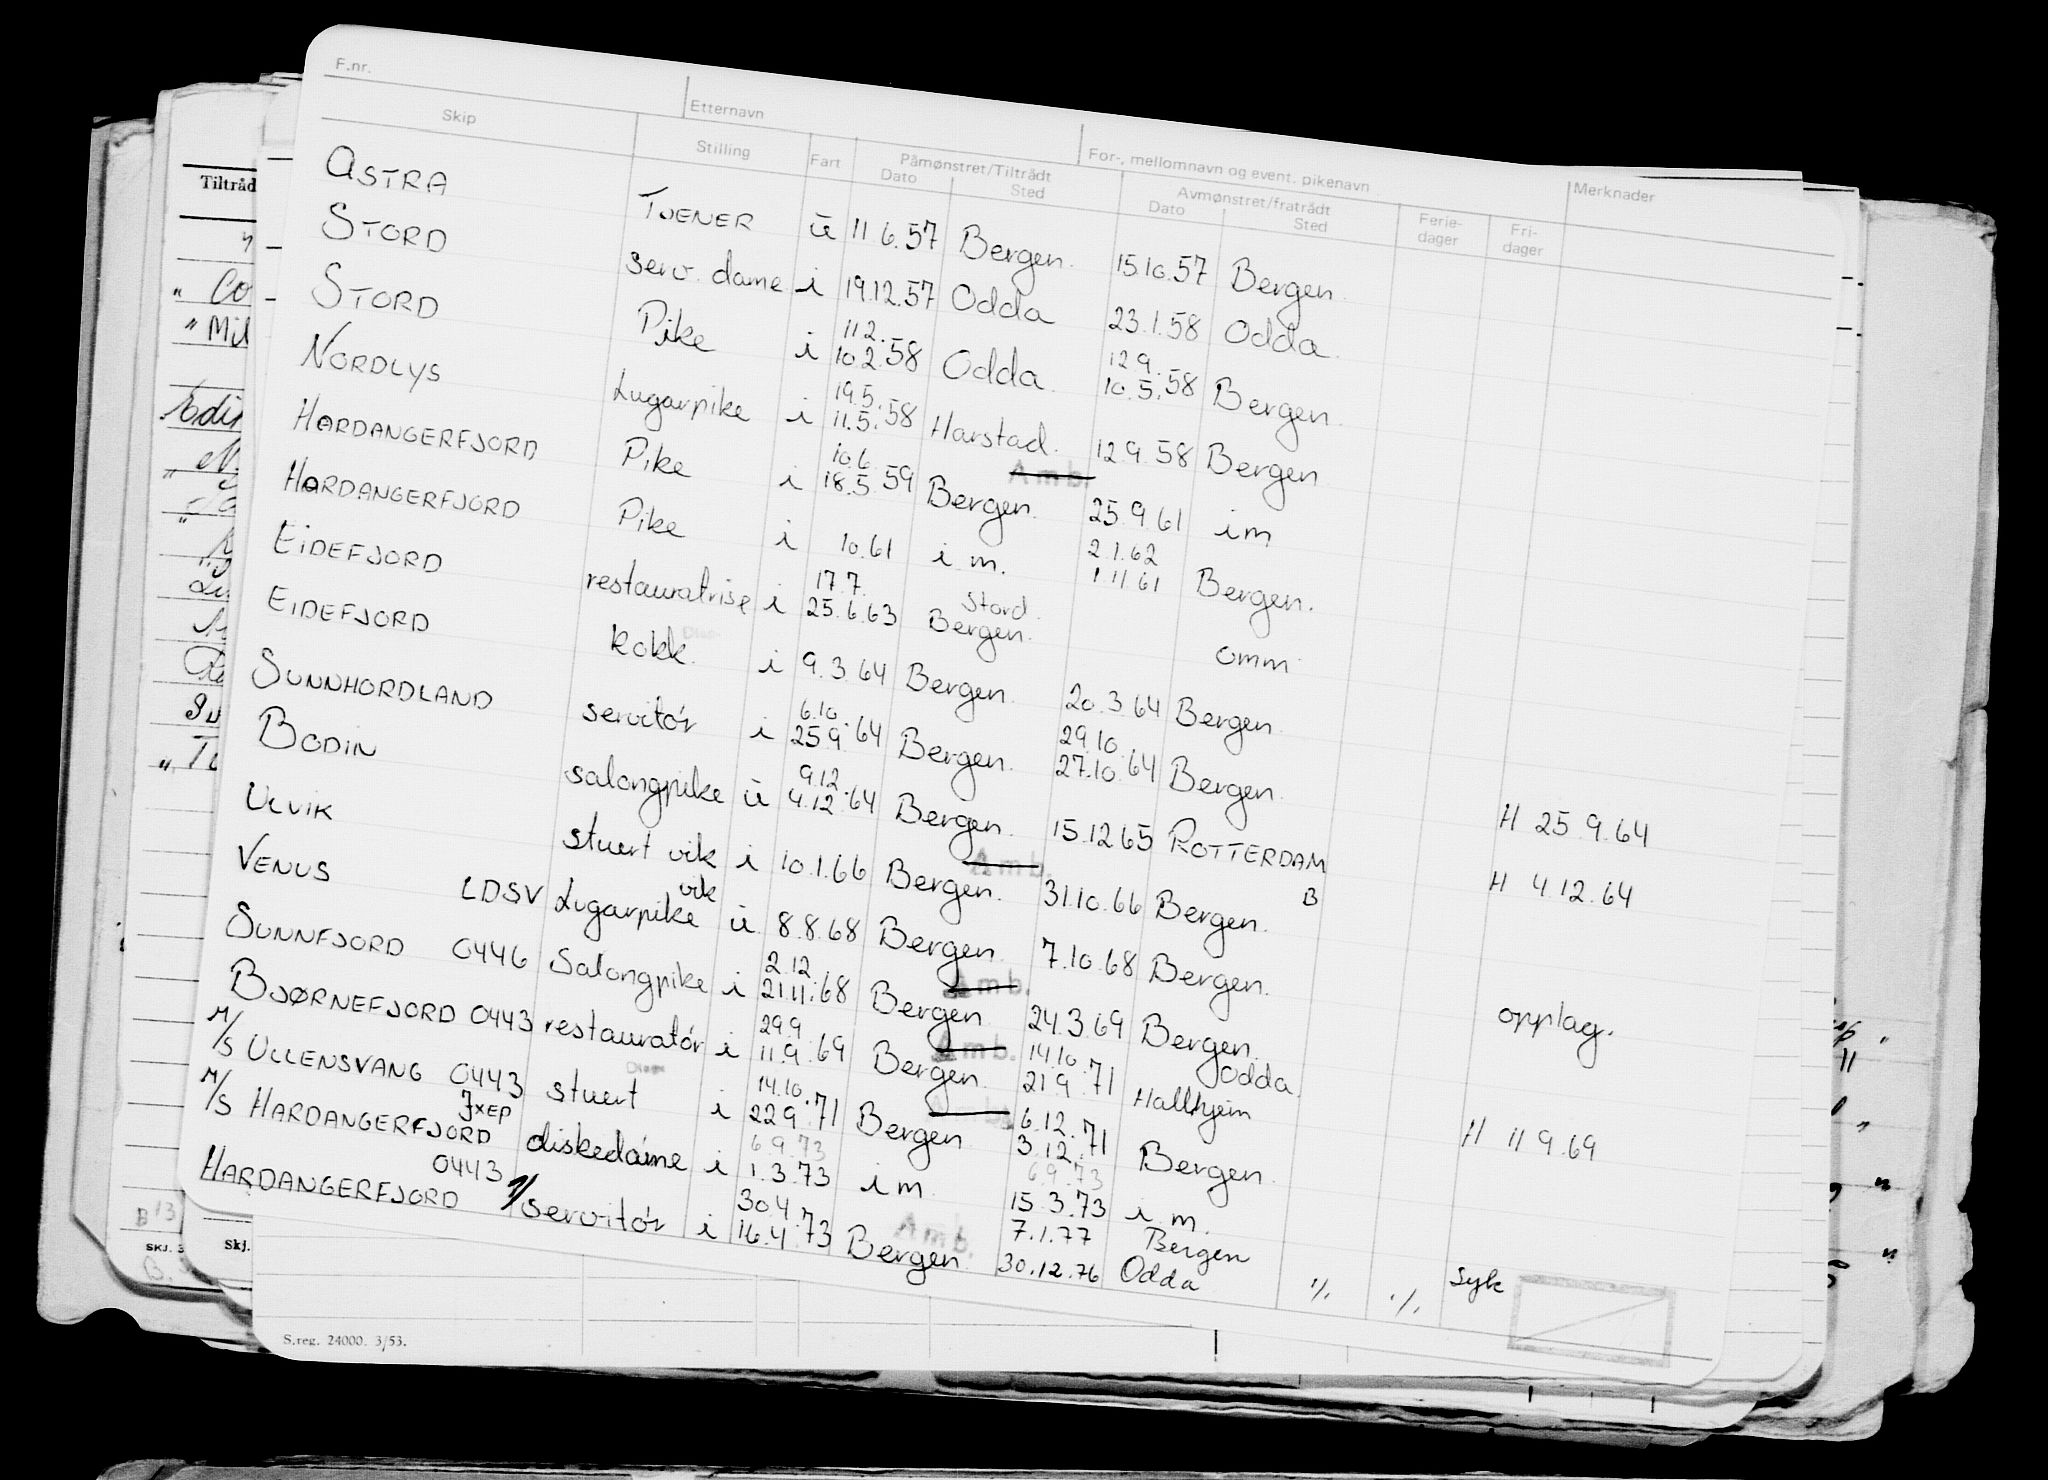 F.nr. Etternavn For-, mellomnavn og event. pikenavn
Skip Stilling Fart Påmønstret/Tiltrådt Avmønstret/fratrådt Ferie- Fri- Merknader
Dato Sted Dato Sted dager dager
ASTRA TJENER u 11 6.57 Bergen. 15.10.57 Bergen.
STORD serv. dame i 19.12.57 Odda 23.1.58 Odda.
11 2. 12 9.
STORD Pike i 10.2.58 Odda. 10.5.58 Bergen.
19.5.
NORDLYS Lugarpike i 11.5.58 Harstad. 12.9.58 Bergen
10.6. Amb.
HARDANGERFJORD Pike i 18.5.59 Bergen. 25.9.61 i m
2.1.62
HARDANGERFJORD Pike i 10.61 i m. 1 11 61 Bergen.
17.7. Stord.
EIDEFJORD restauratrise i 25.6.63 Bergen. omm
EIDEFJORD kokk. i 9.3.64 Bergen. 20.3.64 Bergen.
6.10. 29.10.
SUNNHORDLAND servitør i 25.9.64 Bergen. 27.10.64 Bergen. H 25.9.64
9.12.
BODIN salongpike u 4.12.64 Bergen. 15.12.65 ROTTERDAM H 4.12.64
Amb. B
ULVIK stuert vik i 10.1.66 Bergen. 31.10.66 Bergen.
vik
VENUS LDSV Lugarpike u 8.8.68 Bergen. 7.10.68 Bergen.
2.12. Amb.
SUNNFJORD 0446 Salongpike i 21.11.68 Bergen. 24.3.69 Bergen. opplag.
29.9 Amb. 14.10 Odda.
BJØRNEFJORD 0443 restauratør i 11.9.69 Bergen. 21.9.71 Hallhjem H 11 9.69
14.10. 6.12.
M/S ULLENSVANG 0443 stuert i 22.9.71 Bergen 3.12.71 Bergen.
JXEP 6.9.73 6.9.73
M/S HARDANGERFJORD diskedame i 1.3.73 i m. 15.3.73 i m.
0443 30.4. Amb. 7.1.77 Bergen
HARDANGERFJORD servitør i 16.4.73 Bergen. 30.12.76 Odda ./. ./. Syk
Tiltråd
Skj.
SKJ. 3
S.reg. 24000. 3/53.